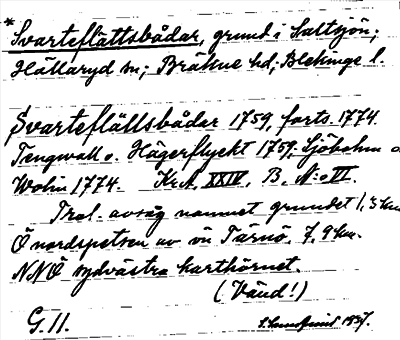 * Svarteflättsbådar, grund i Saltsjön;
Hällaryd sn; Bräkne hd; Blekinge l.
Svarteflällsbåder 1759, forts. 1774.
Tengwall o. Hägerflyckt 1759; Sjöbohm o
Wolin 1774. Kr.A. XXIV, B, N:o VI.
Trol. avsåg namnet grundet 1,3 km
Ö nordspetsen av ön Tärnö, 7,9 km.
NNÖ sydvästra karthörnet.
(Vänd!)
G. 11. 1937.